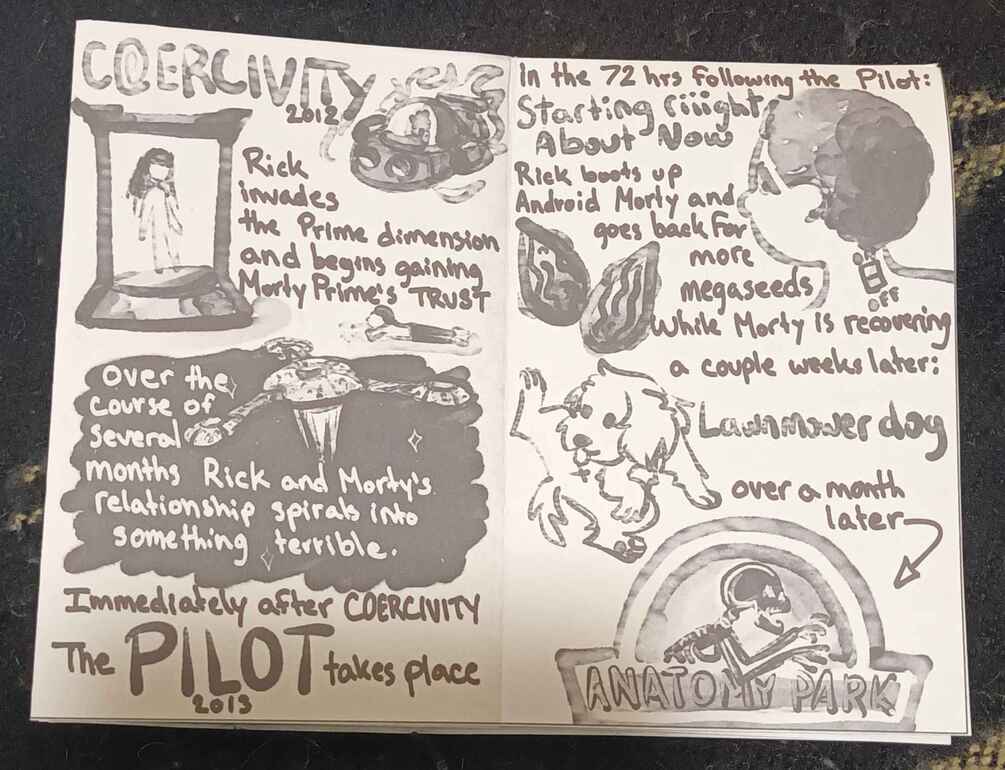 COERCIVITY
2012
Rick
invades
the Prime dimension
and begins gaining
Morty Prime's TRUST
over the
course of
several
months Rick and Morty's
relationship spirals into
something terrible.
Immediately after COERCIVITY
The PILOT takes place
2013
In the 72 hrs following the Pilot:
Starting riiight
About Now
Rick boots up
Android Morty and
goes back for
more
megaseeds
OFF
While Morty is recovering
a couple weeks later:
Lawnmower dog
over a month
later
ANATOMY PARK